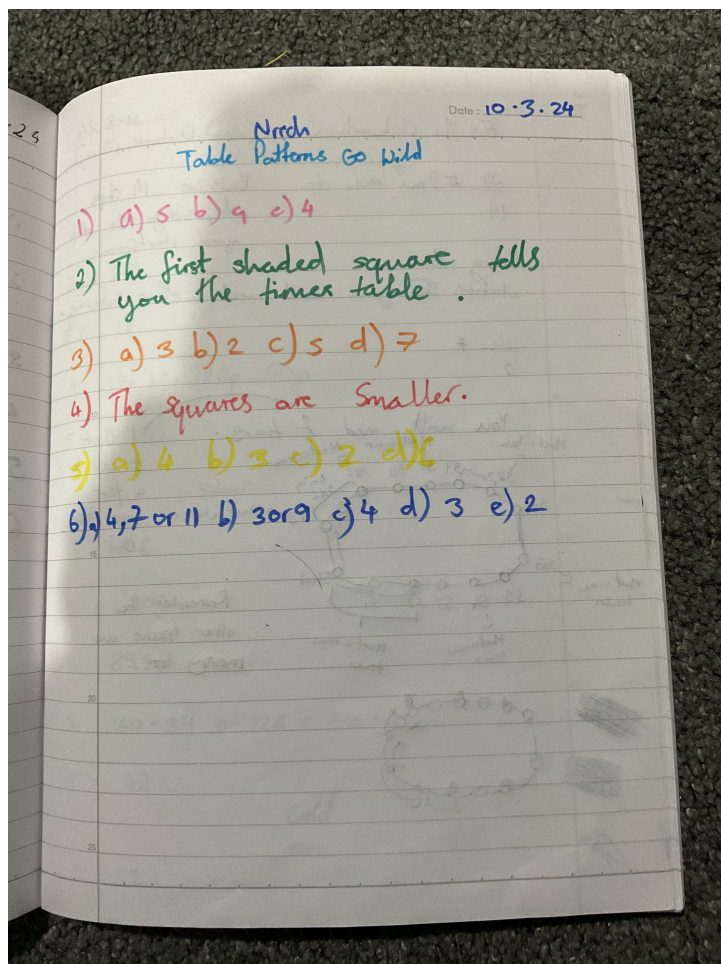 Date: 10.3.24
Nrich
Table Patterns Go Wild
1) a) 5 b) 9 c) 4
2) The first shaded square tells
you the times table.
3) a) 3 b) 2 c) 5 d) 7
4) The squares are smaller.
5) a) 4 b) 3 c) 2 d) 6
6) a) 4, 7 or 11 b) 3 or 9 c) 4 d) 3 e) 2
15
20
25